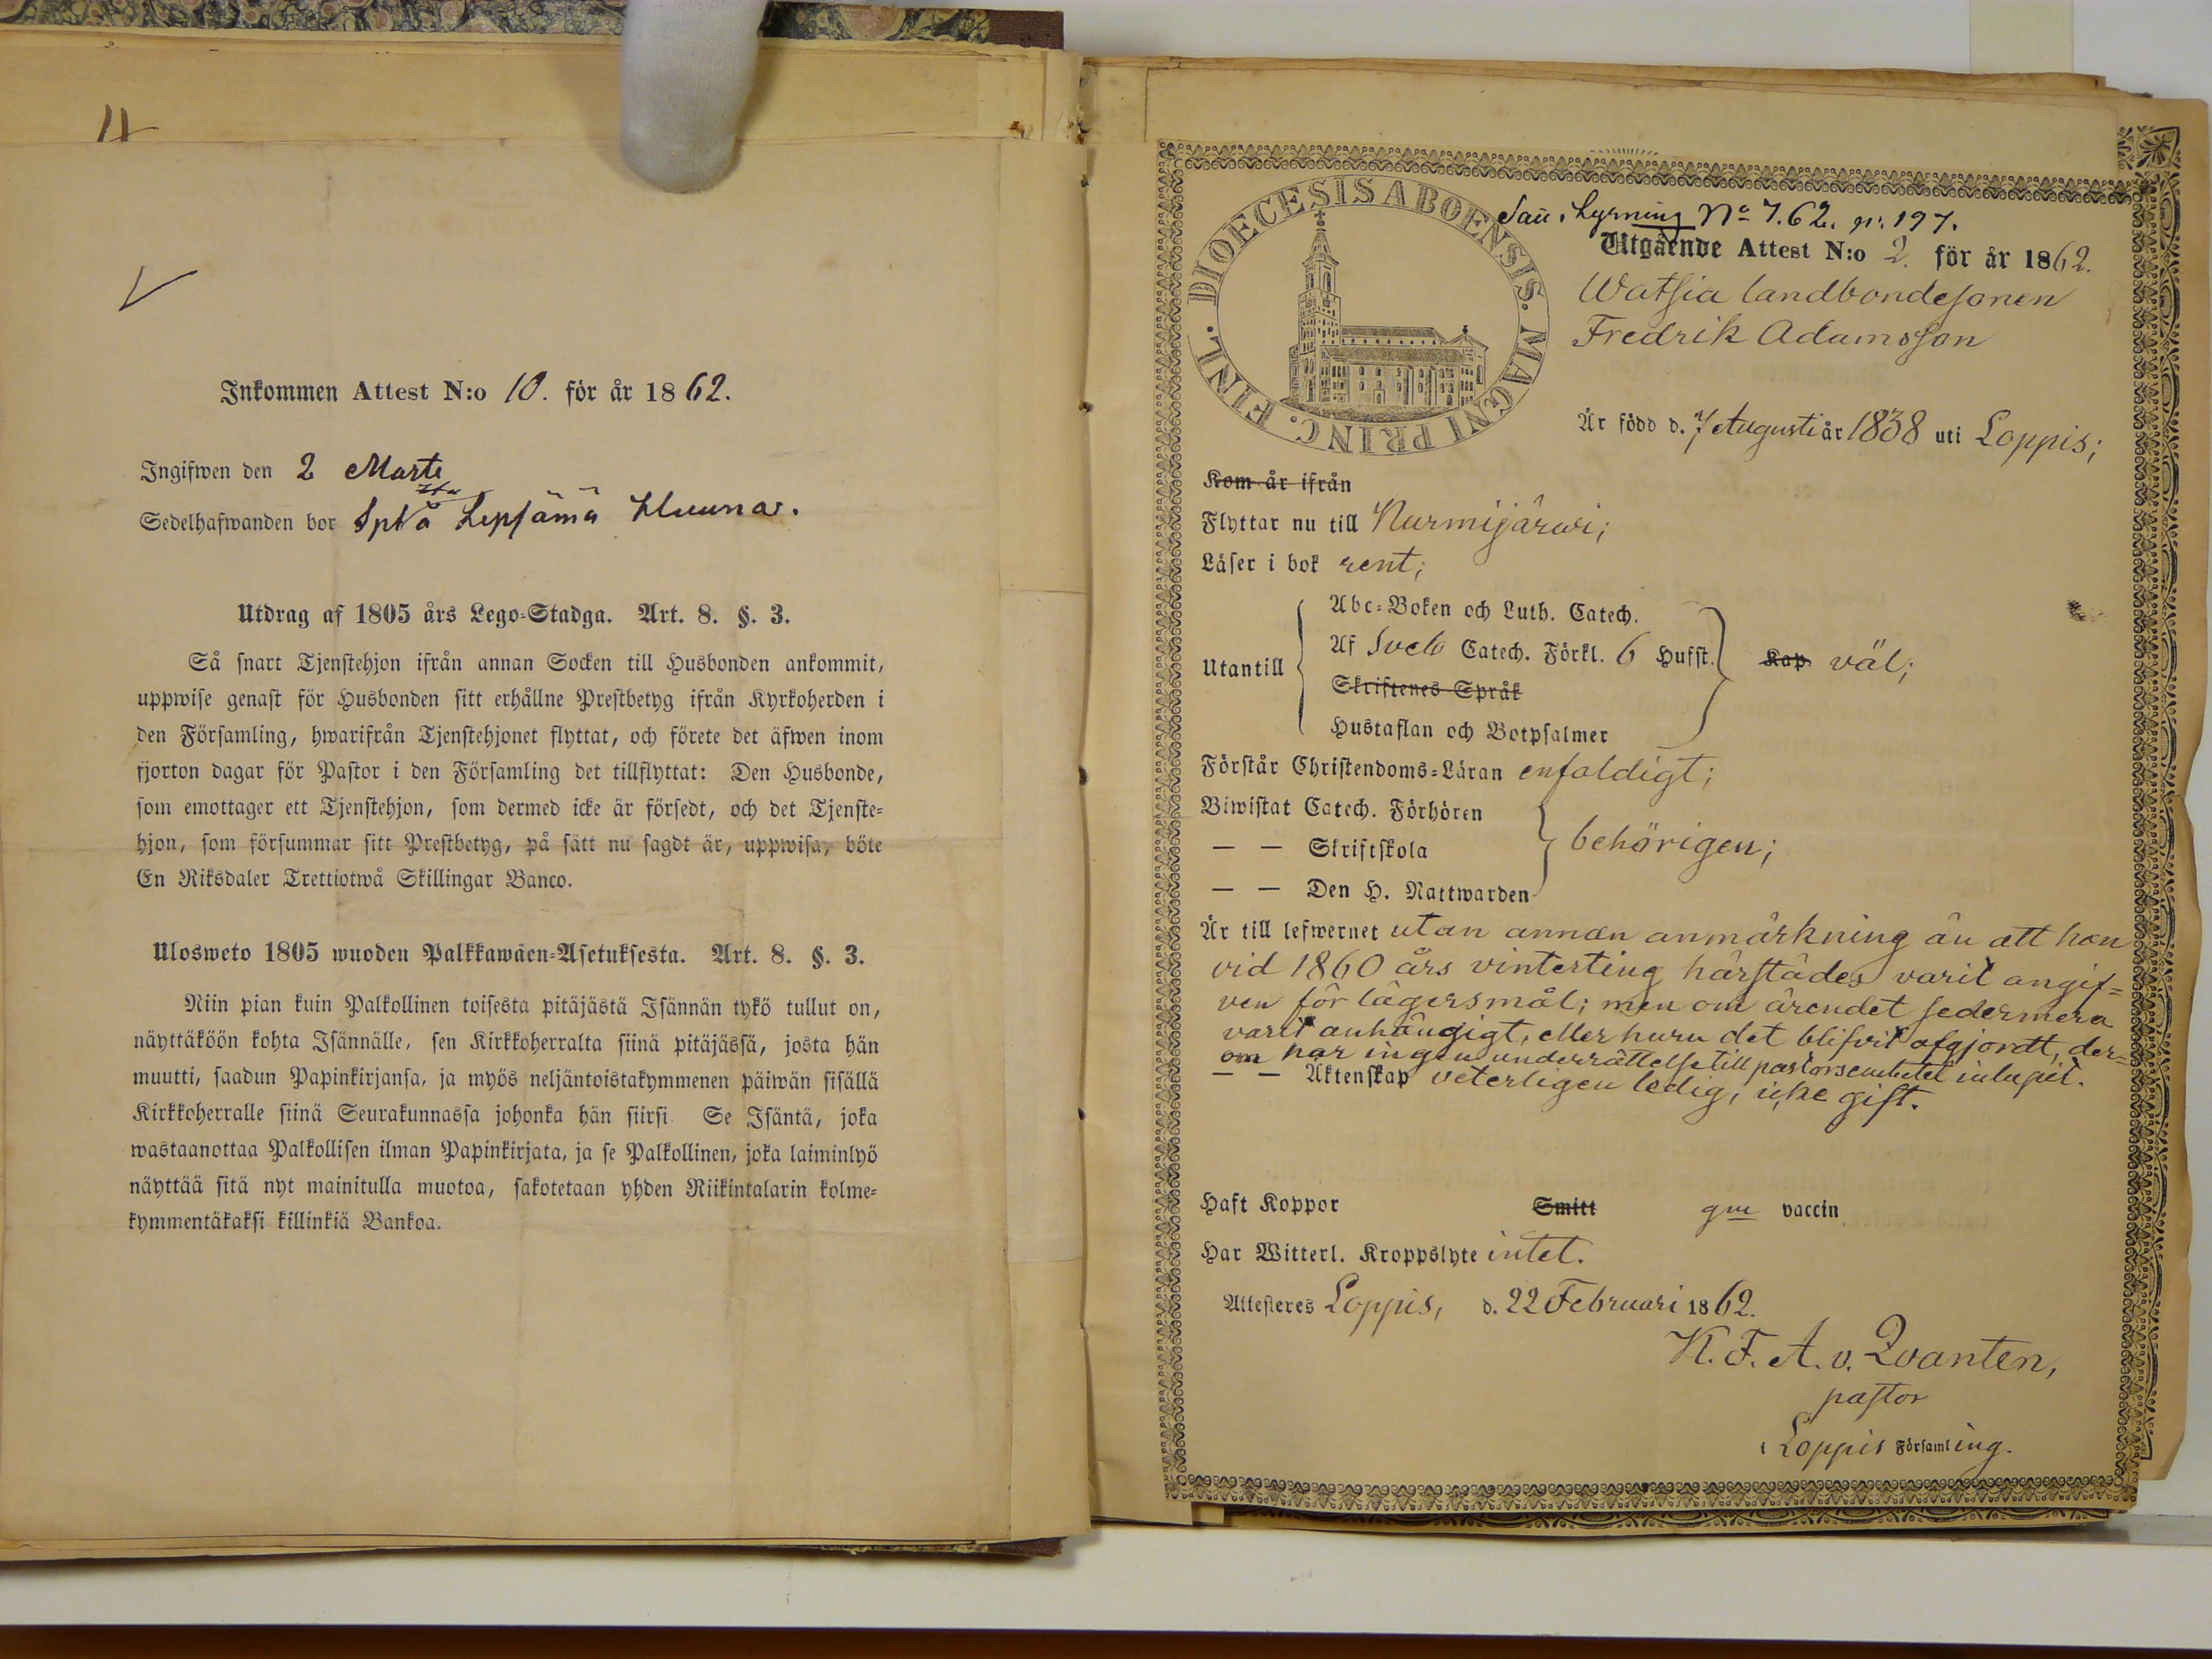 Inkommen Attest N:o 10. för år 1862.
Ingifwen den 2 Marti
Sedelhafwanden bor på Lepsämä
Utdrag af 1805 års Lego-Stadga. Art. 8. §. 3.
Så snart Tjenstehjon ifrån annan Socken till Husbonden ankommit,
uppwise genast för Husbonden sitt erhållne Prestbetyg ifrån Kyrkoherden i
den Församling, hwarifrån Tjenstehjonet flyttat, och förete det äfwen inom
fjorton dagar för Pastor i den Församling det tillflyttat: Den Husbonde,
som emottager ett Tjenstehjon, som dermed icke är försedt, och det Tjenste-
hjon, som försummar sitt Prestbetyg, på sätt nu sagdt är, uppwisa, böte
En Riksdaler Trettiotwå Skillingar Banco.
Ulosweto 1805 wuoden Palkkawäen-Asetuksesta. Art. 8. §. 3.
Niin pian kuin Palkollinen toisesta pitäjästä Isännän tykö tullut on,
näyttäköön kohta Isännälle, sen Kirkkoherralta siinä pitäjässä, josta hän
muutti, saadun Papinkirjansa, ja myös neljäntoistakymmenen päiwän sisällä
Kirkkoherralle siinä Seurakunnassa johonka hän siirsi. Se Isäntä, joka
wastaanottaa Palkollisen ilman Papinkirjata, ja se Palkollinen, joka laiminlyö
näyttää sitä nyt mainitulla muotoa, sakotetaan yhden Riikintalarin kolme-
kymmentäkaksi killinkiä Bankoa.
DIOECESIS ABOENSIS. MAGNI PRINC. FINL.
Lysning No 7.62. p: 197.
Utgående Attest N:o 2. för år 1862.
Watsia landbondesonen
Fredrik Adamsson
Är född d. 7 Augusti år 1838 uti Loppis;
Kom år ifrån
Flyttar nu till Nurmijärwi;
Läser i bok rent;
Abc-Boken och Luth. Catech.
Utantill Af Sveb Catech. Förkl. 6 Hufst. Kap väl;
Skriftenes Språk
Hustaflan och Botpsalmer
Förstår Christendoms-Läran enfaldigt;
Biwistat Catech. Förhören
— — Skriftskola behörigen;
— — Den H. Nattwarden
Är till lefwernet utan annan anmärkning än att han
vid 1860 års vinterting härstädes varit angif-
ven för lägersmål; men om ärendet sedermera
varit anhängigt, eller huru det blifvit afgjordt, der-
om har ingen underrättelse till pastorsembetet inlupit.
— — Äktenskap veterligen ledig, icke gift.
Haft Koppor Smitt gm vaccin
Har Witterl. Kroppslyte intet.
Attesteres Loppis, d. 22 Februari 1862.
K. F. A. v. Qvanten,
pastor
i Loppis Församling.